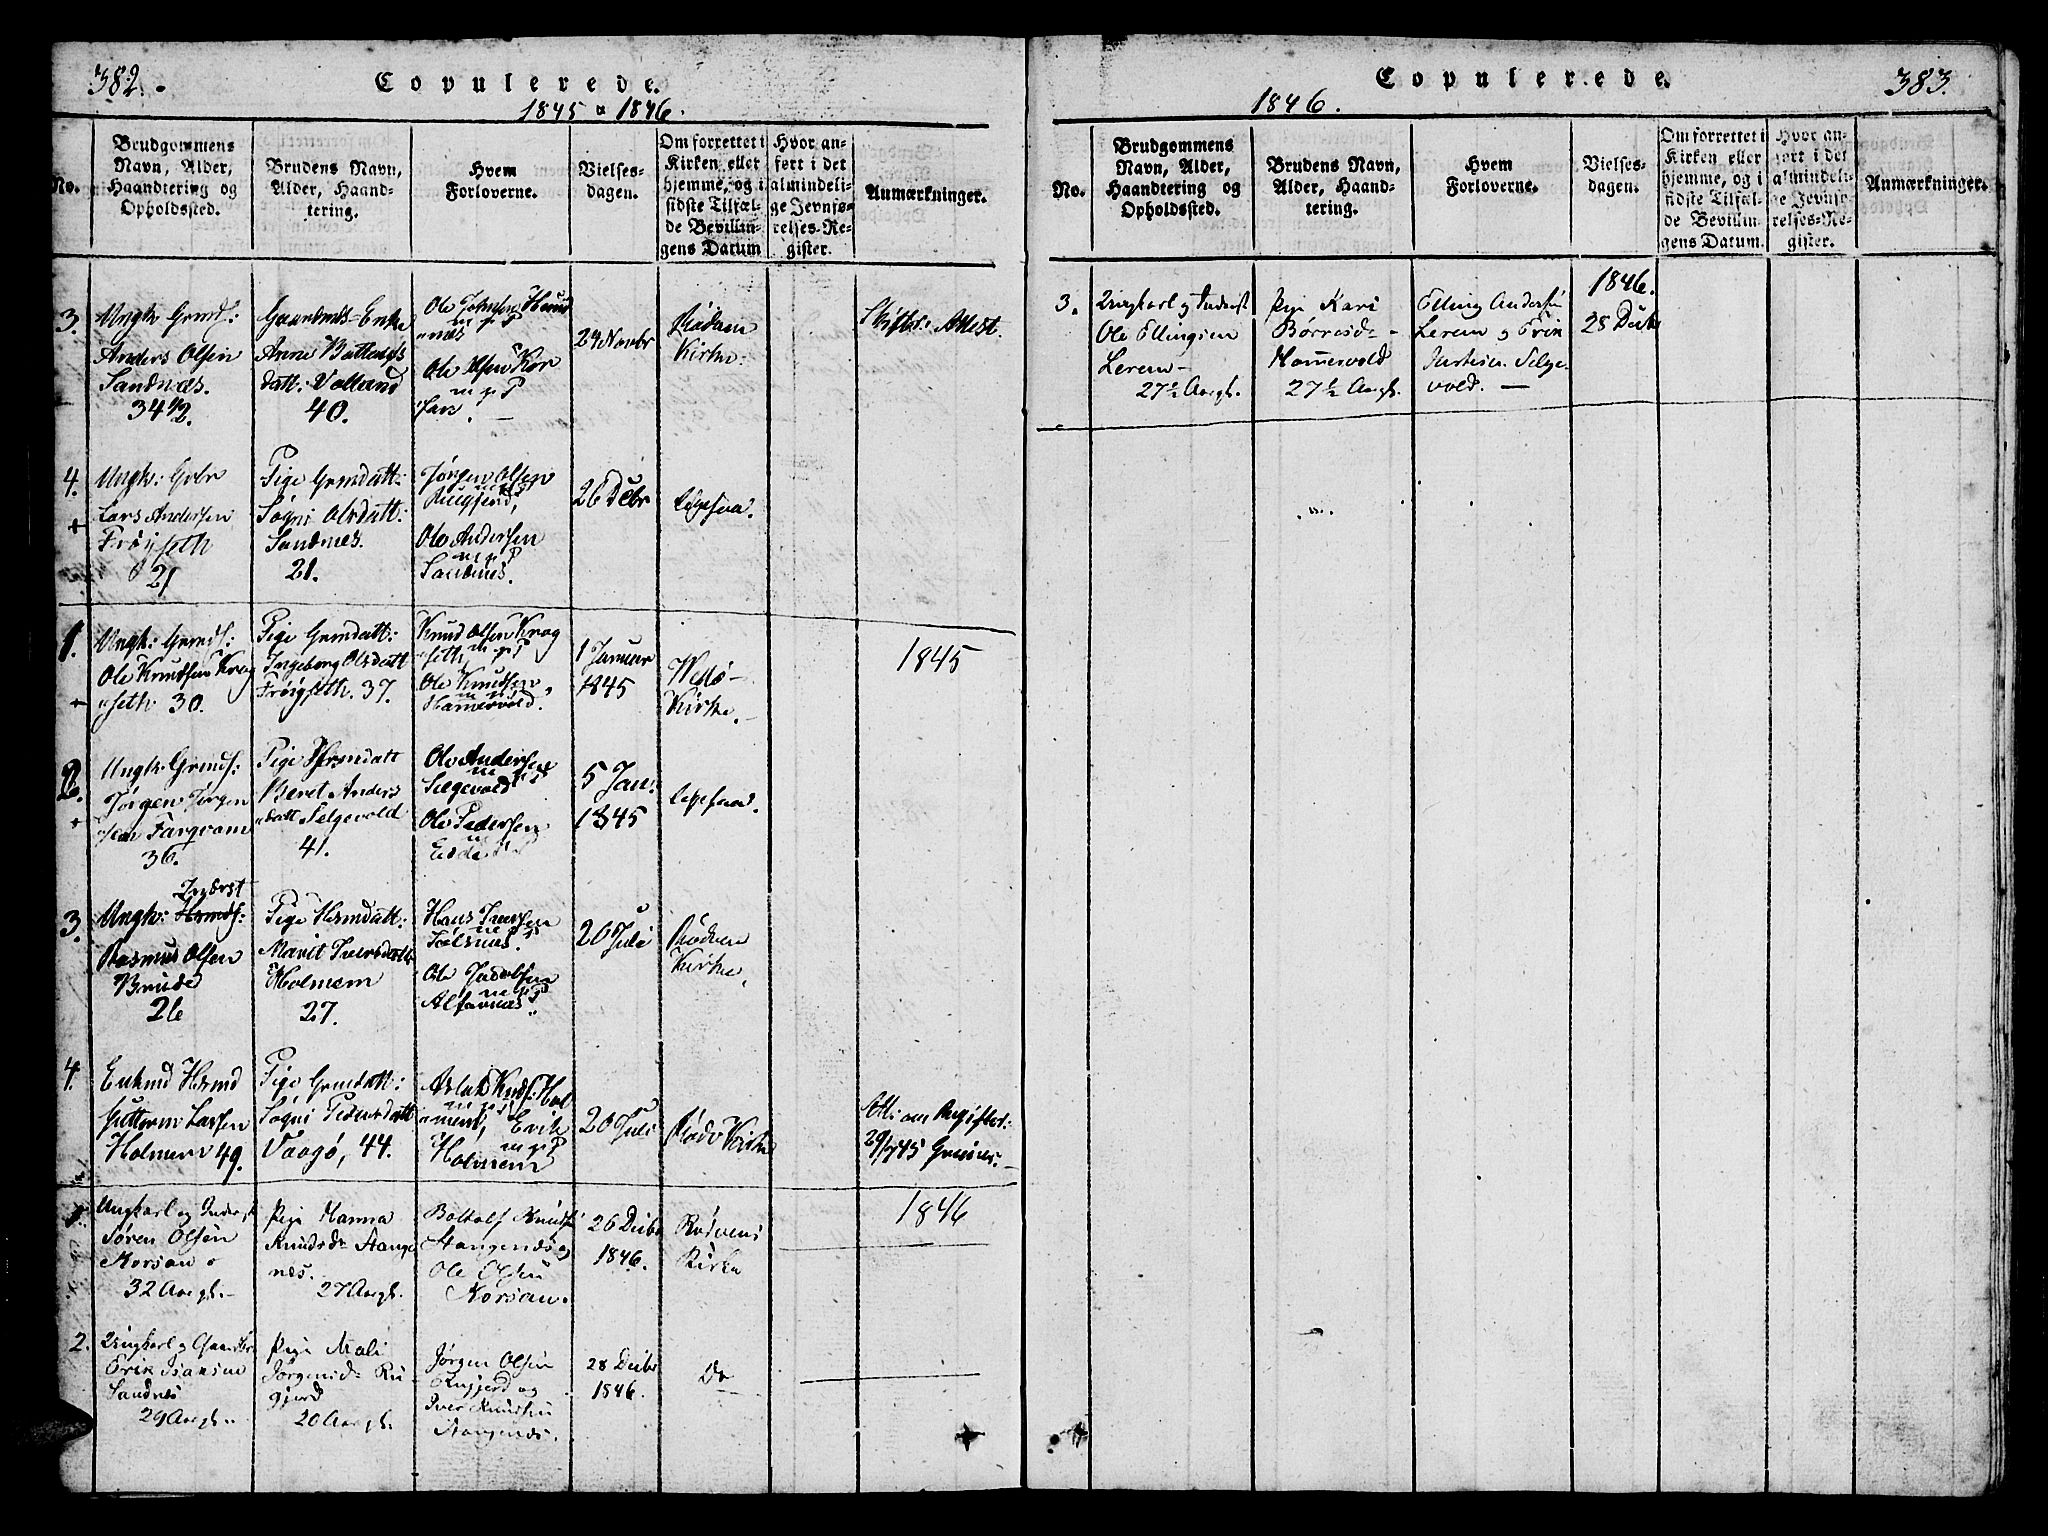 382.
Copulerede.
1845 & 1846.
No.
Brudgommens
Navn, Alder,
Haandtering og
Opholdssted.
Brudens Navn,
Alder, Haand-
tering.
Hvem
Forloverne.
Vielses-
dagen.
Om forrettet i
Kirken eller
hjemme, og i
sidste Tilfæl-
de Bevillin-
gens Datum
Hvor an-
ført i det
almindeli-
ge Jevnfø-
relses-Re-
gister.
Anmærkninger.
3.
Ungk: Grmds:
Anders Olsen
Sandnæs.
34 1/2.
Gaardmds-Enke
Anne
datt: Volland
40.
Ole Johnsen
næs
Ole Olsen Kor
san.
24 Novbr
Kirke.
Skifter: Attest.
4.
Ungk:
Lars Andersen
Frøyseth
21
Pige Grmdatt:
Søgni Olsdatt:
Sandnæs.
21.
Jørgen Olsen
Ole Andersen
Sandnæs.
26 Debr
1.
Ungk: Grmds:
Ole Knudsen Krog
seth 30.
Pige Grmdatt:
Ingeborg Olsdatt
Frøigseth. 37.
Knud Olsen Krog
seth
Ole Knudsen
Hamervold.
1 Januar
1845
Kirke.
1845
2.
Ungk: Grmds:
Jørgen Jørgen
sen Fargvam
36.
Pige Hsmdatt
Beret Anders
datt Selgevold
41.
Ole Andersen
Selgevold
Ole Pedersen
5 Jan:
1845
3.
Inderst
Ungk: Hsmds:
Rasmus Olsen
Brude
26
Pige Hsmdatt:
Marit Iversdatt
Holmem
27.
Hans Iversen
Ole Jacobsen
Alfarnæs.
20 Juli
Rødven
Kirke
4.
Enkmd Hsmd
Guttorm Larsen
Holmem 49.
Pige Grmdatt:
Søgni Pedersdatt
Vaagø, 44.
Aslak Knds: Hol
mem, Erik
Holmem
20 Juli
Rødv Kirke
Att: om
29/7 45
1.
Ungkarl og Inderst
Søren Olsen
Korsan
32 Aar gl.
Pige Hanna
Knudsdr Stange
næs.
27 Aar gl.
Knuds
Stangenæs og
Ole Olsen
Korsan.
26 Decbr
1846.
Rødvens
Kirke
1846
2.
Ungkarl og
Erik Isaksen
Sandnæs
29 Aar gl.
Pige Mali
Jørgensdr Ru
gjerd
20 Aar gl.
Jørgen Olsen
Rugjerd og
Iver Knudsen
Stangenæs.
28 Decbr
1846.
Do
Copulerede.
383.
1846.
No.
Brudgommens
Navn, Alder,
Haandtering og
Opholdssted.
Brudens Navn,
Alder, Haand-
tering.
Hvem
Forloverne.
Vielses-
dagen.
Om forrettet i
Kirken eller
hjemme, og i
sidste Tilfæl-
de Bevillin-
gens Datum.
Hvor an-
ført i det
almindeli-
ge Jevnfø-
relses-Re-
gister.
Anmærkninger.
3.
Ungkarl og Inderst
Ole Ellingsen
Lerem
27 1/2 Aar gl.
Pige Kari
Børresdr
Hammervold
27 1/2 Aar gl.
Elling Andersen
Lerem og Erik
Selge
vold.
1846.
28 Decbr